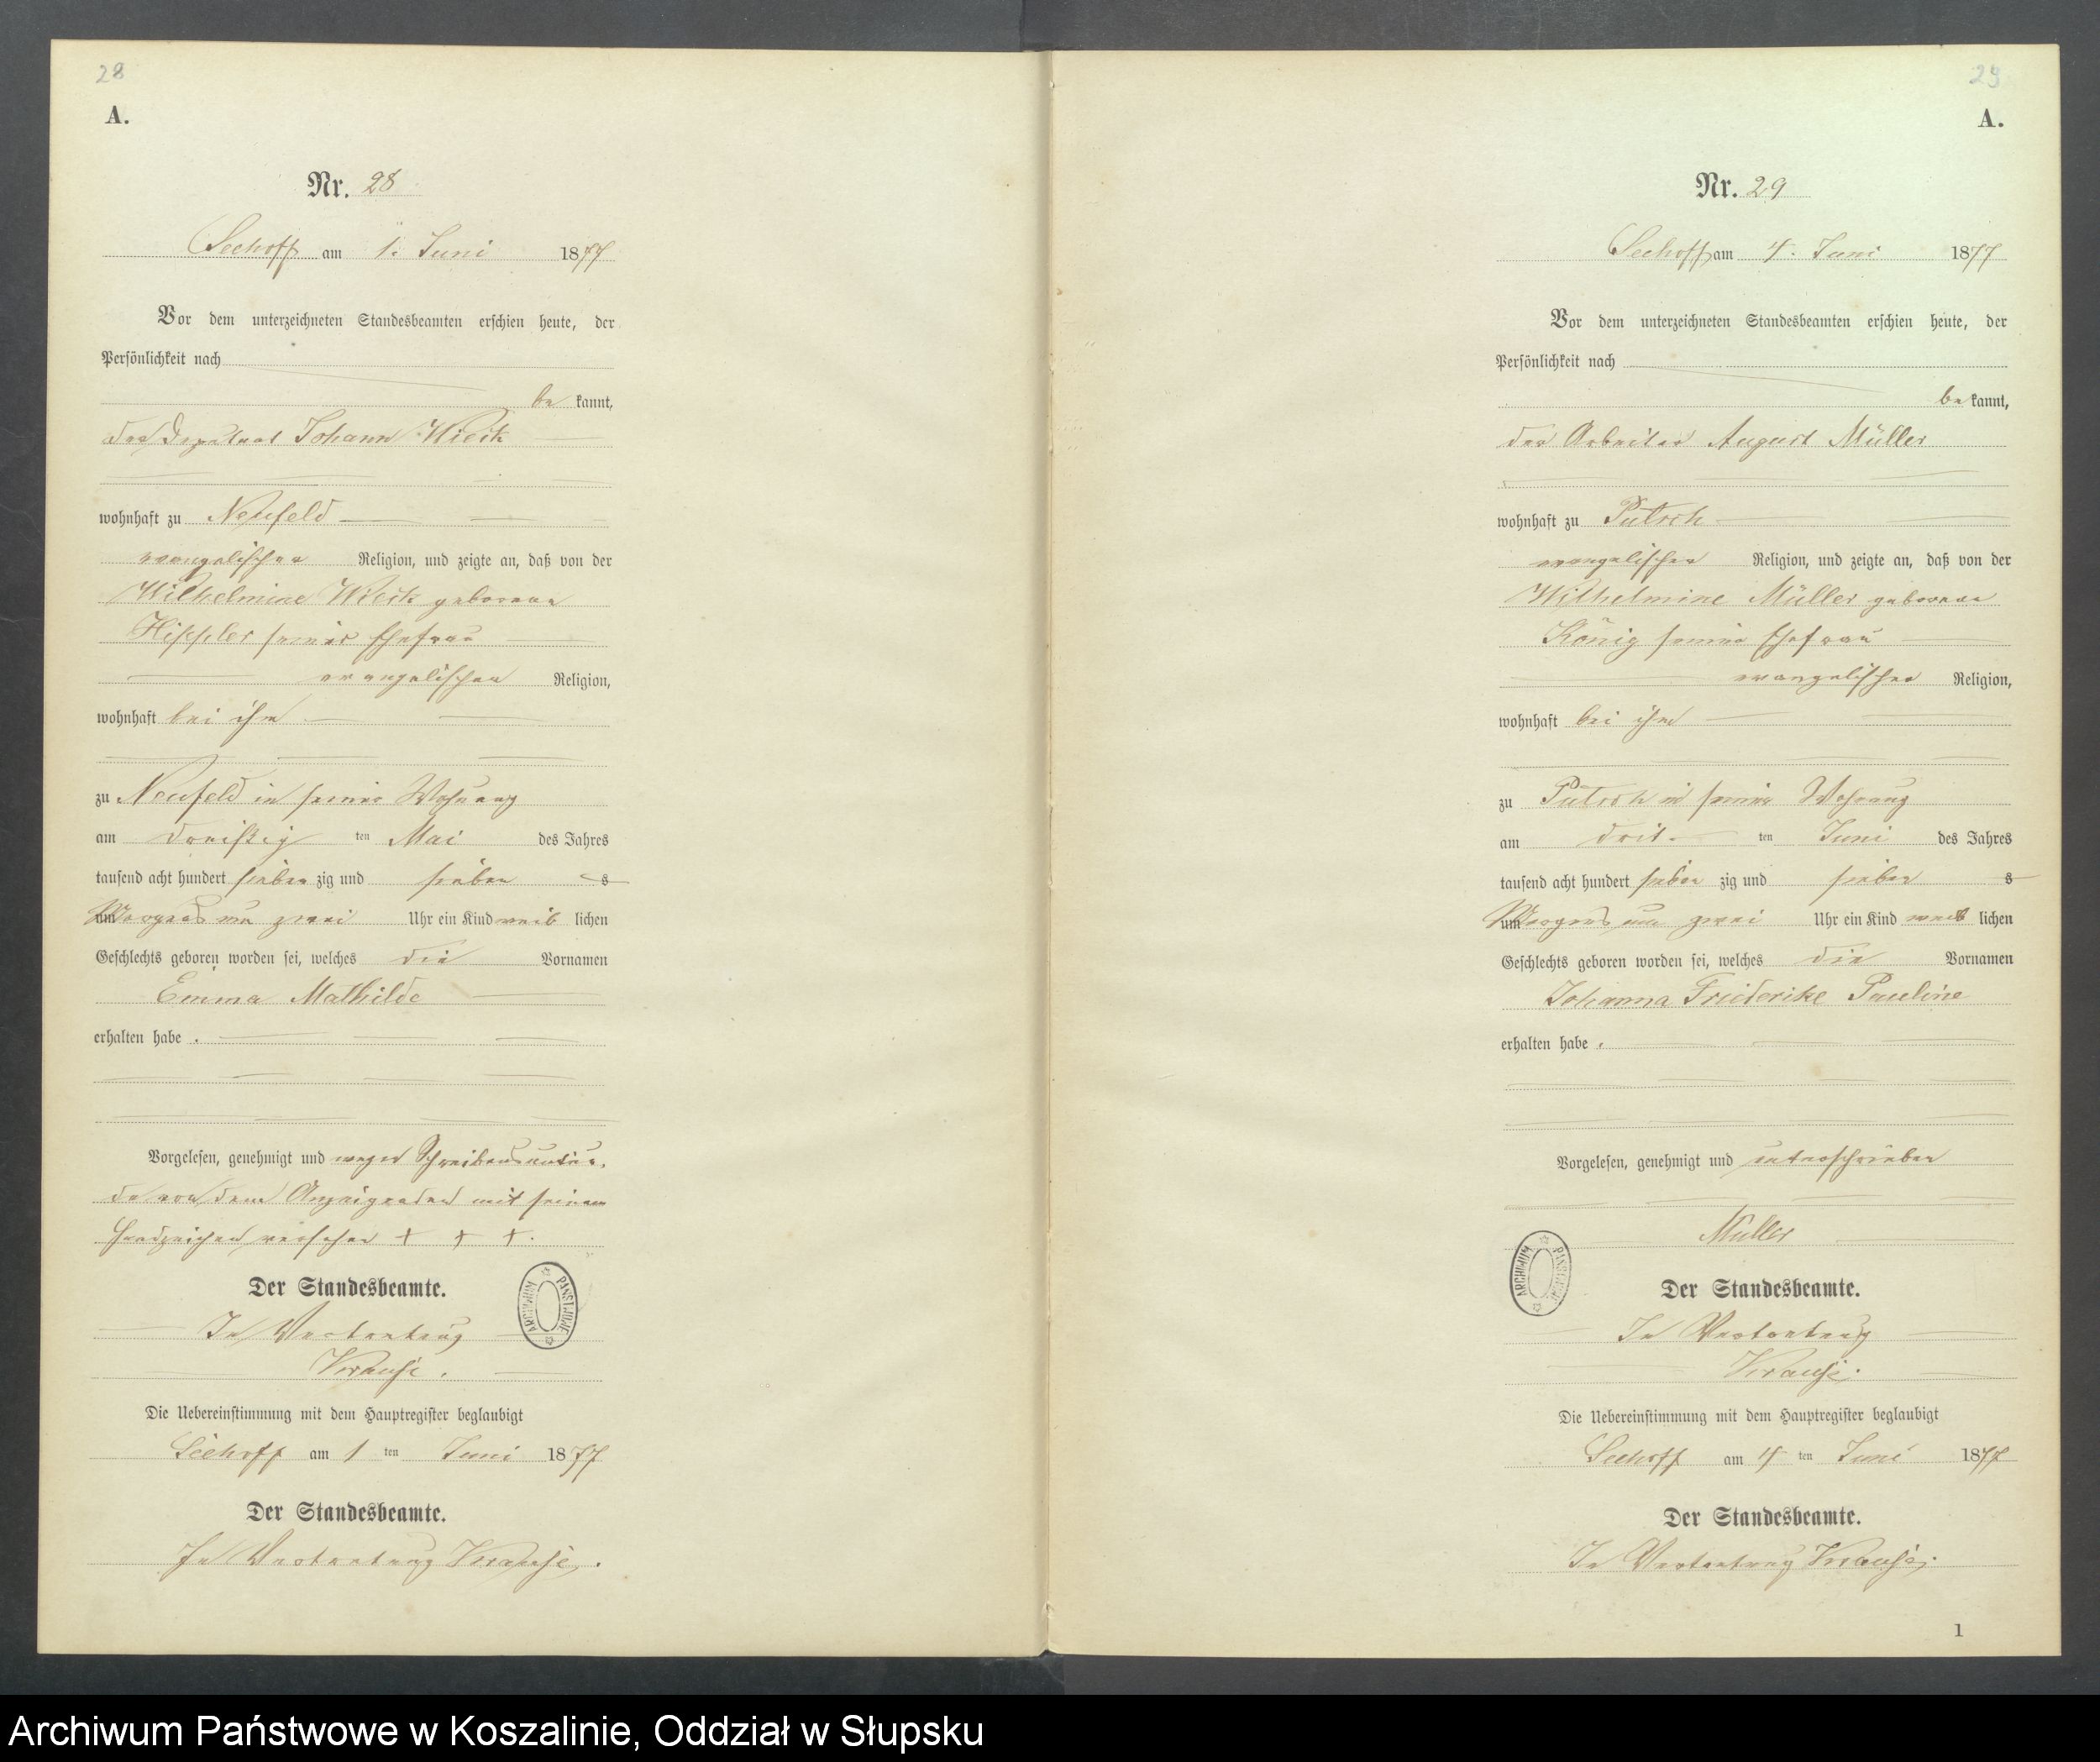 28
A.
Nr. 28
Seehoff am 1. Juni 1877
Vor dem unterzeichneten Standesbeamten erschien heute, der
Persönlichkeit nach
be kannt,
der Deputant Johann Wieck
wohnhaft zu Neufeld
evangelischen Religion, und zeigte an, daß von der
Wilhelmine Wieck geborenen
seiner Ehefrau
evangelischen Religion,
wohnhaft bei ihm
zu Neufeld in seiner Wohnung
am dreißig ten Mai des Jahres
tausend acht hundert sieben zig und sieben s
Morgens um zwei Uhr ein Kind weib lichen
Geschlechts geboren worden sei, welches die Vornamen
Emma Mathilde
erhalten habe .
Vorgelesen, genehmigt und wegen Schreibensunkun-
de von dem Anzeigenden mit seinem
Handzeichen versehen + + +.
Der Standesbeamte.
In Vertretung
Krause.
Die Uebereinstimmung mit dem Hauptregister beglaubigt
Seehoff am 1 ten Juni 1877
Der Standesbeamte.
In Vertretung Krause.
ARCHIWUM PAŃSTWOWE
29
A.
Nr. 29
Seehoff am 4. Juni 1877
Vor dem unterzeichneten Standesbeamten erschien heute, der
Persönlichkeit nach
be kannt,
der Arbeiter August Müller
wohnhaft zu Pütsch
evangelischer Religion, und zeigte an, daß von der
Wilhelmine Müller geborene
König seiner Ehefrau
evangelischer Religion,
wohnhaft bei ihm
zu Pütsch in seiner Wohnung
am drit- ten Juni des Jahres
tausend acht hundert sieben zig und sieben s
Morgens um zwei Uhr ein Kind weib lichen
Geschlechts geboren worden sei, welches die Vornamen
Johanna Friederike Pauline
erhalten habe .
Vorgelesen, genehmigt und unterschrieben
Müller
Der Standesbeamte.
In Vertretung
Krause.
Die Uebereinstimmung mit dem Hauptregister beglaubigt
Seehoff am 4 ten Juni 1877
Der Standesbeamte.
In Vertretung Krause.
ARCHIWUM PAŃSTWOWE
1
Archiwum Państwowe w Koszalinie, Oddział w Słupsku